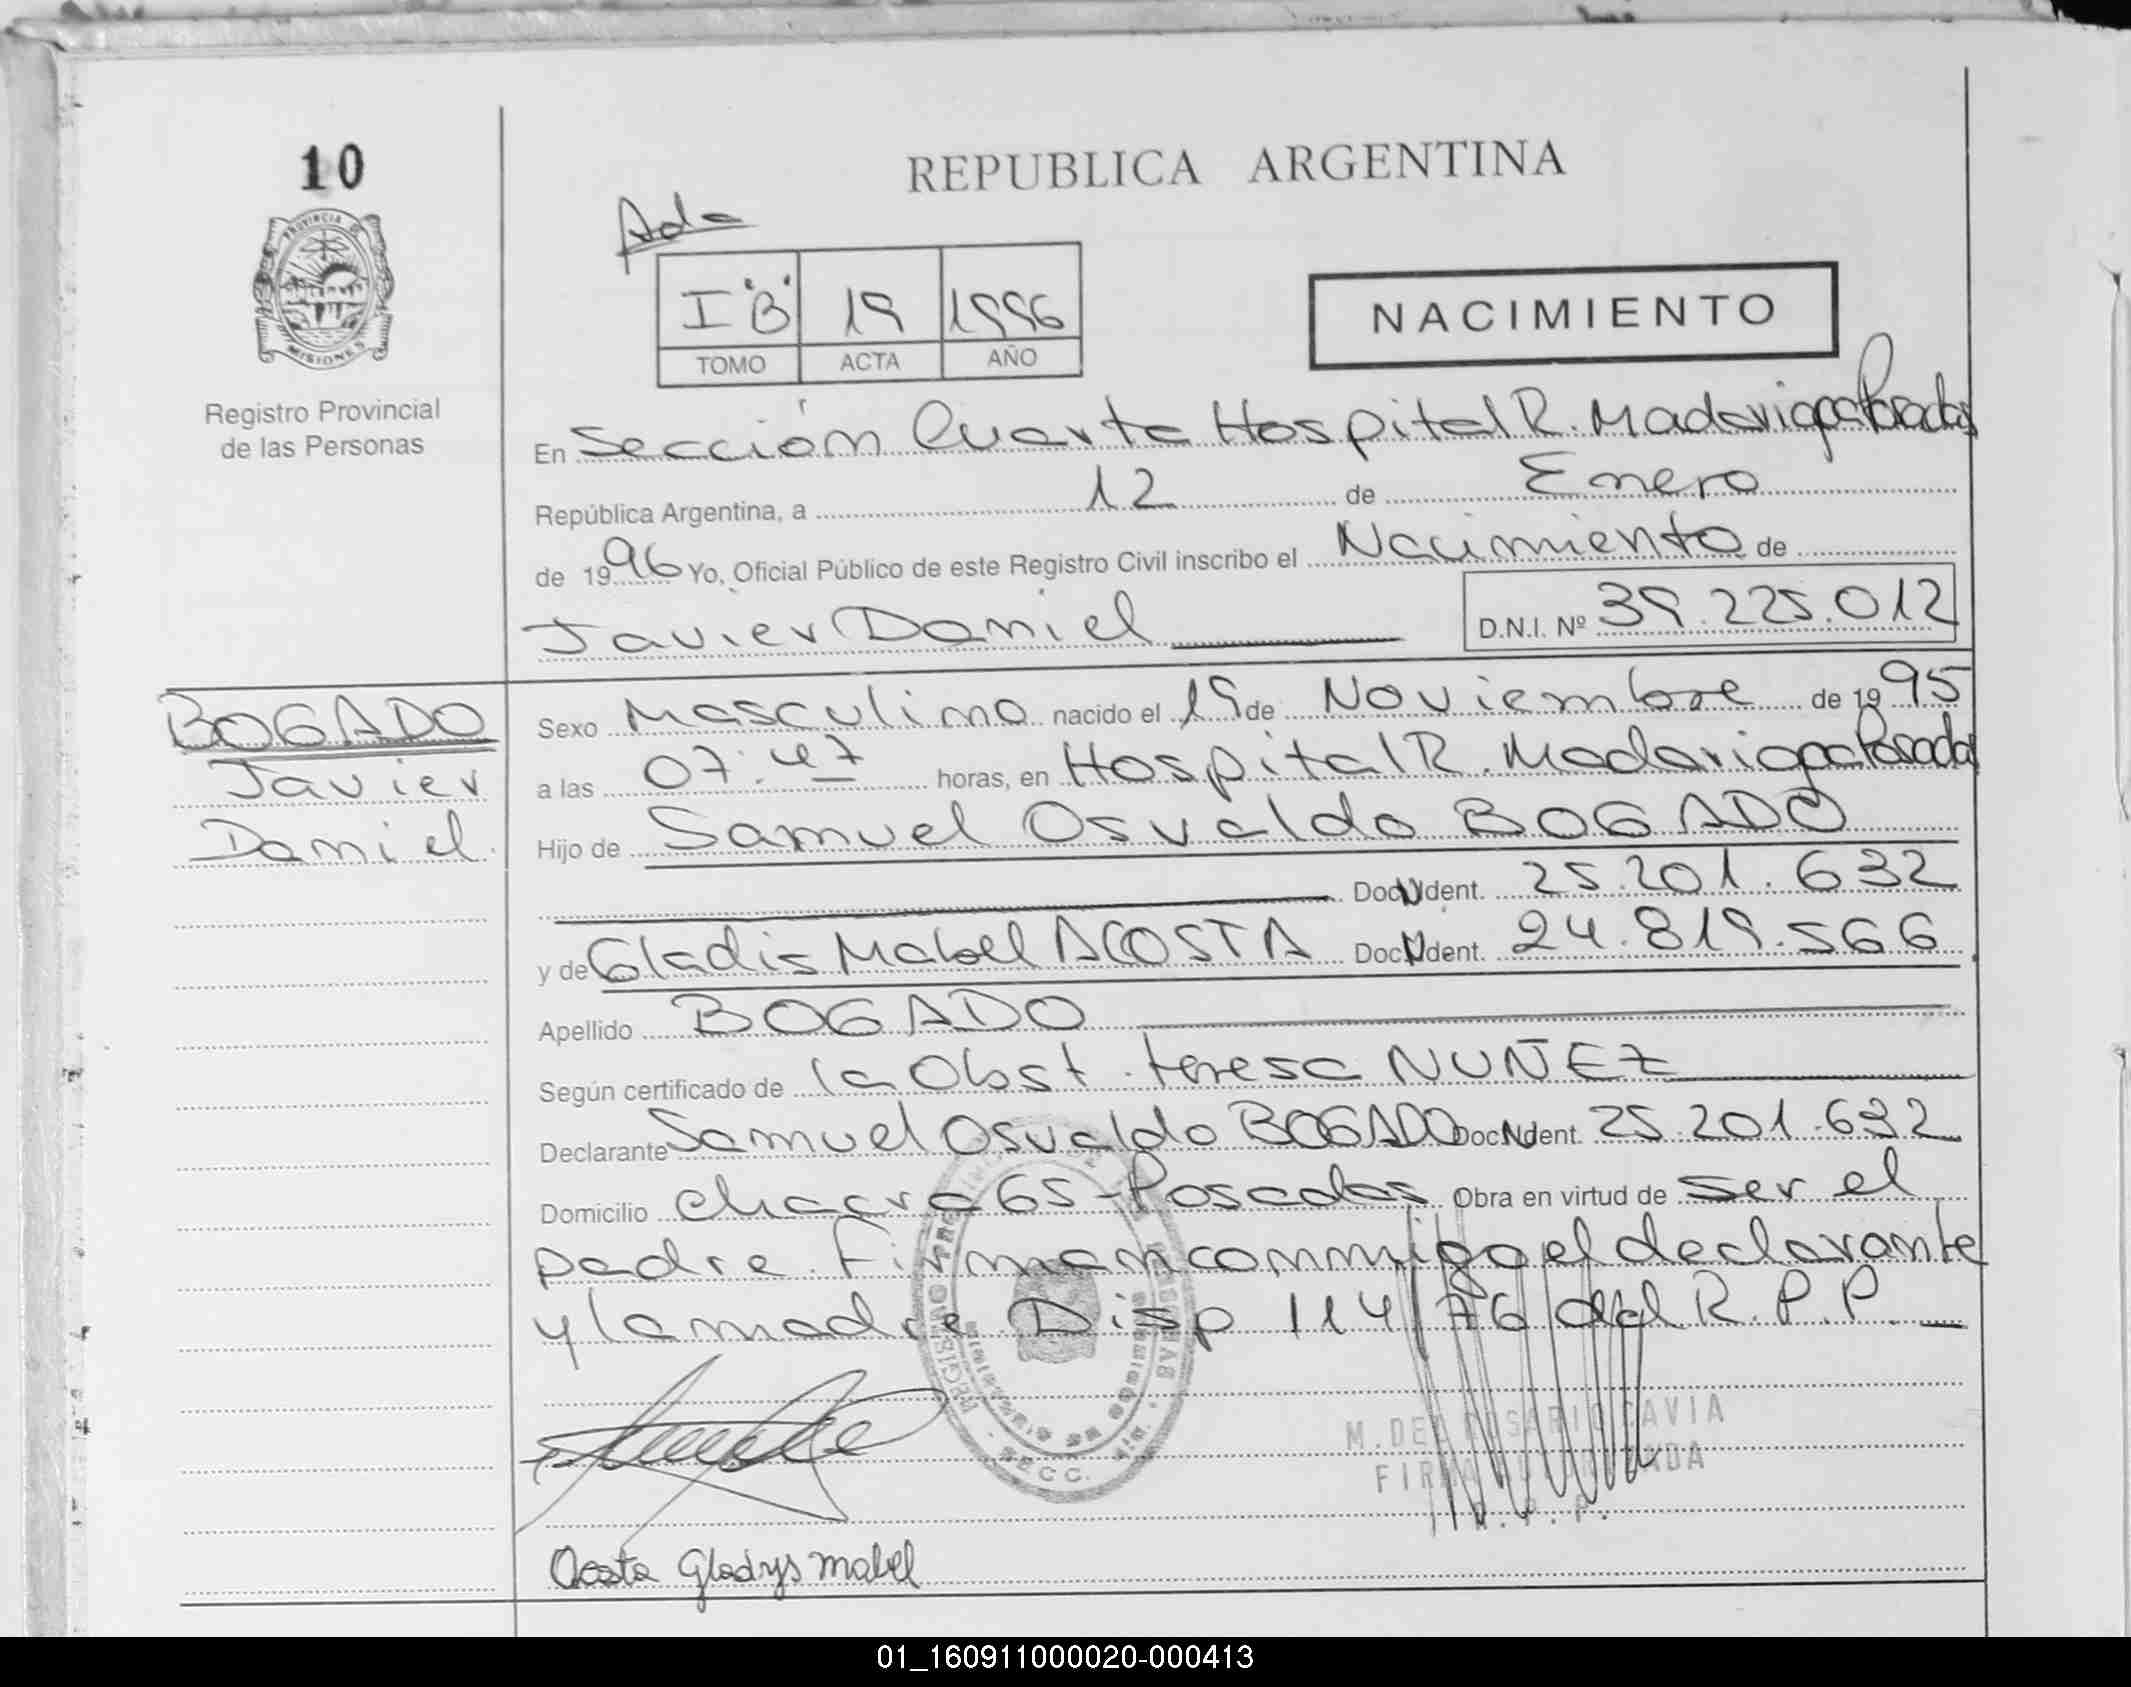 10
PROVINCIA DE
MISIONES
Registro Provincial
de las Personas
REPUBLICA ARGENTINA
I "B" 19 1996
TOMO ACTA AÑO
NACIMIENTO
En Sección Cuarta Hospital R. Madariaga Posadas
República Argentina, a 12 de Enero
de 1996 Yo, Oficial Público de este Registro Civil inscribo el Nacimiento de
Javier Daniel D.N.I. Nº 39.225.012
BOGADO
Javier
Daniel.
Sexo Masculino nacido el 19 de Noviembre de 1995
a las 07:47 horas, en Hospital R. Madariaga Posadas
Hijo de Samuel Osvaldo BOGADO
Doc. Ident. 25.201.632
y de Gladis Mabel ACOSTA Doc. Ident. 24.819.566
Apellido BOGADO
Según certificado de la Obst. teresa NUÑEZ
Declarante Samuel Osvaldo BOGADO Doc. Ident. 25.201.632
Domicilio chacra 65 - Posadas Obra en virtud de ser el
padre. Firman conmigo el declarante
y la madre. Disp 114/76 del R.P.P.
M. DEL ROSARIO GAVIA
FIRMA AUTORIZADA
R. P. P.
Acosta Gladys mabel
01_160911000020-000413